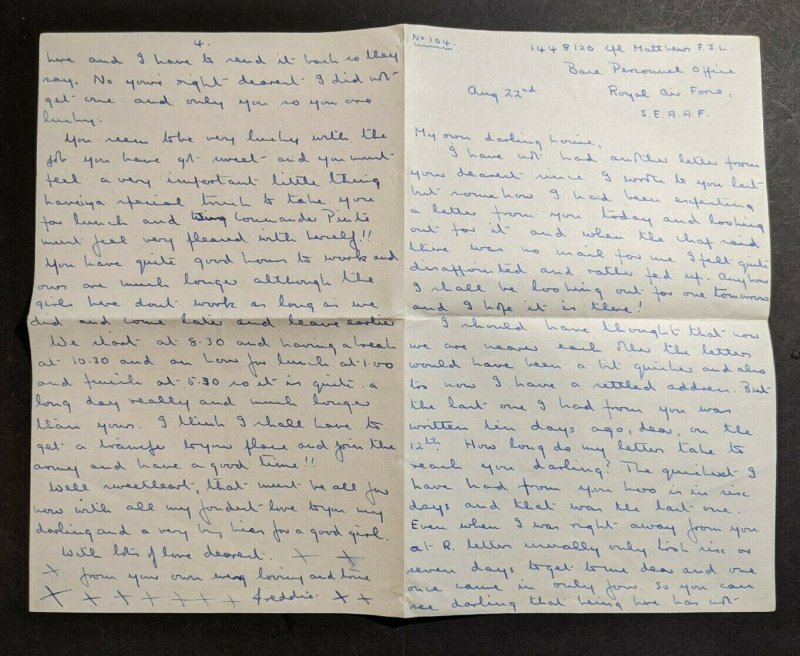 No 104.
1448120 Cpl Matthews F.J.L.
Base Personnel Office
Aug 22nd Royal Air Force,
S.E.A.A.F.
My own darling
I have not had another letter from
you dearest since I wrote to you last
but somehow I had been expecting
a letter from you today and looking
out for it and when the chap said
there was no mail for me I felt quite
disappointed and rather fed up. Anyhow
I shall be looking out for one tomorrow
and I hope it is there!
I should have thought that now
we are nearer each other the letters
would have been a bit quicker and also
too now I have a settled address. But
the last one I had from you was
written ten days ago, dear, on the
12th. How long do my letters take to
reach you darling? The quickest I
have had from you here is in six
days and that was the last one.
Even when I was right away from you
at R. letters usually only took six or
seven days to get to me dear and one
once came in only four. So you can
see darling that being here has not
4.
here and I have to send it back so they
say. No you're right dearest I did not
get one and only you so you are
lucky.
You seem to be very lucky with the
job you have got sweet and you must
feel a very important little thing
having a special to take you
for lunch and Commander
must feel very pleased with herself!!
You have quite good hours to work and
ours are much longer although the
girls here dont work as long as we
do and come later and leave earlier
We start at 8.30 and having a break
at 10.30 and an hour for lunch at 1.00
and finish at 5.30 so it is quite a
long day really and much longer
than yours. I think I shall have to
get a transfer to your place and join the
army and have a good time!!
Well sweetheart, that must be all for
now with all my fondest love to you my
darling and a very big kiss for a good girl.
With lots of love dearest. X X
X from your own very loving and true
X X X X X X X Freddie. X X